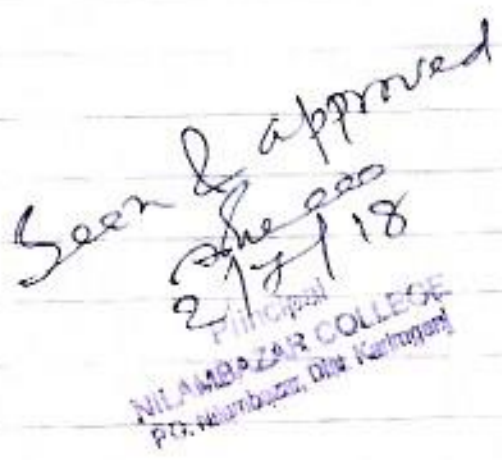 Seen & approved
2/7/18
Principal
NILAMBAZAR COLLEGE
P.O. Nilambazar, Dist Karimganj